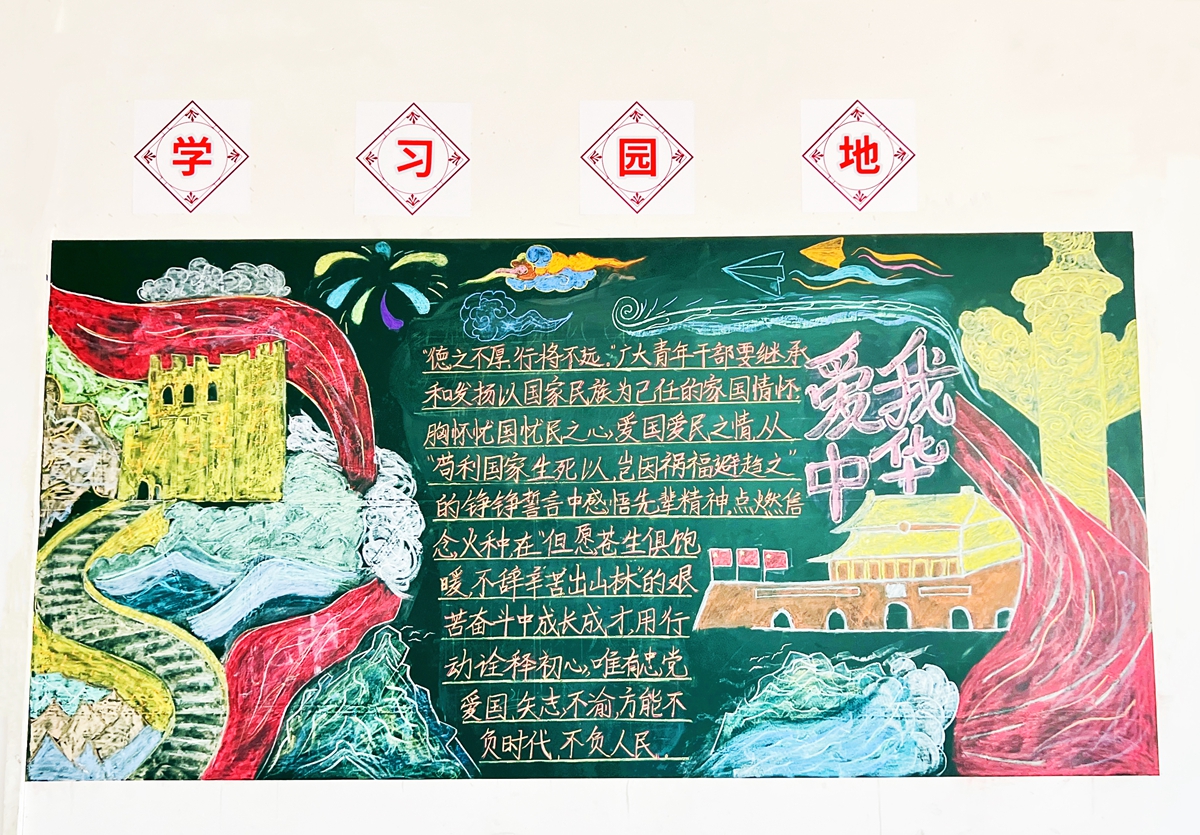 学习园地
"德之不厚,行将不远。"广大青年干部要继承
和发扬以国家民族为己任的家国情怀
胸怀忧国忧民之心,爱国爱民之情,从
"苟利国家生死以,岂因祸福避趋之"
的铮铮誓言中感悟先辈精神,点燃信
念火种,在"但愿苍生俱饱
暖,不辞辛苦出山林"的艰
苦奋斗中成长成才,用行
动诠释初心,唯有忠党
爱国,矢志不渝,方能不
负时代,不负人民。
我爱
中华